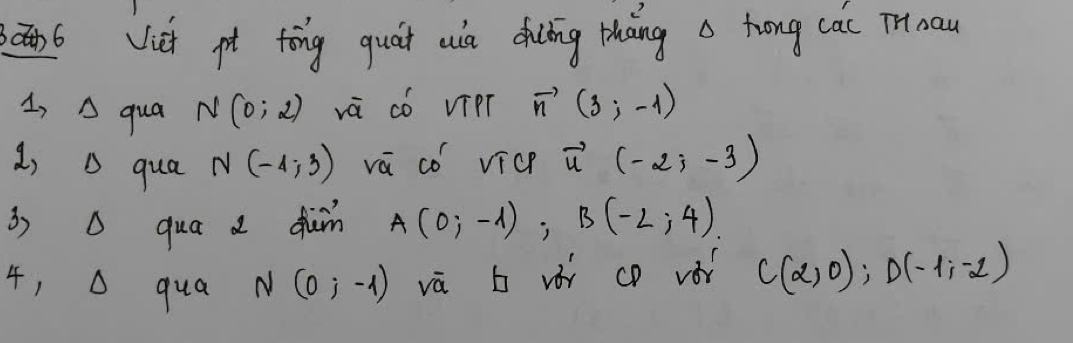 Bài 6 Viết pt tổng quát của đường thẳng Δ trong các TH sau
1, Δ qua N(0; 2) và có VTPT n⃗ (3; -1)
2, Δ qua N(-1; 3) và có VTCP u⃗ (-2; -3)
3, Δ qua 2 điểm A(0; -1); B(-2; 4).
4, Δ qua N(0; -1) và với CD với C(2; 0); D(-1; -2)